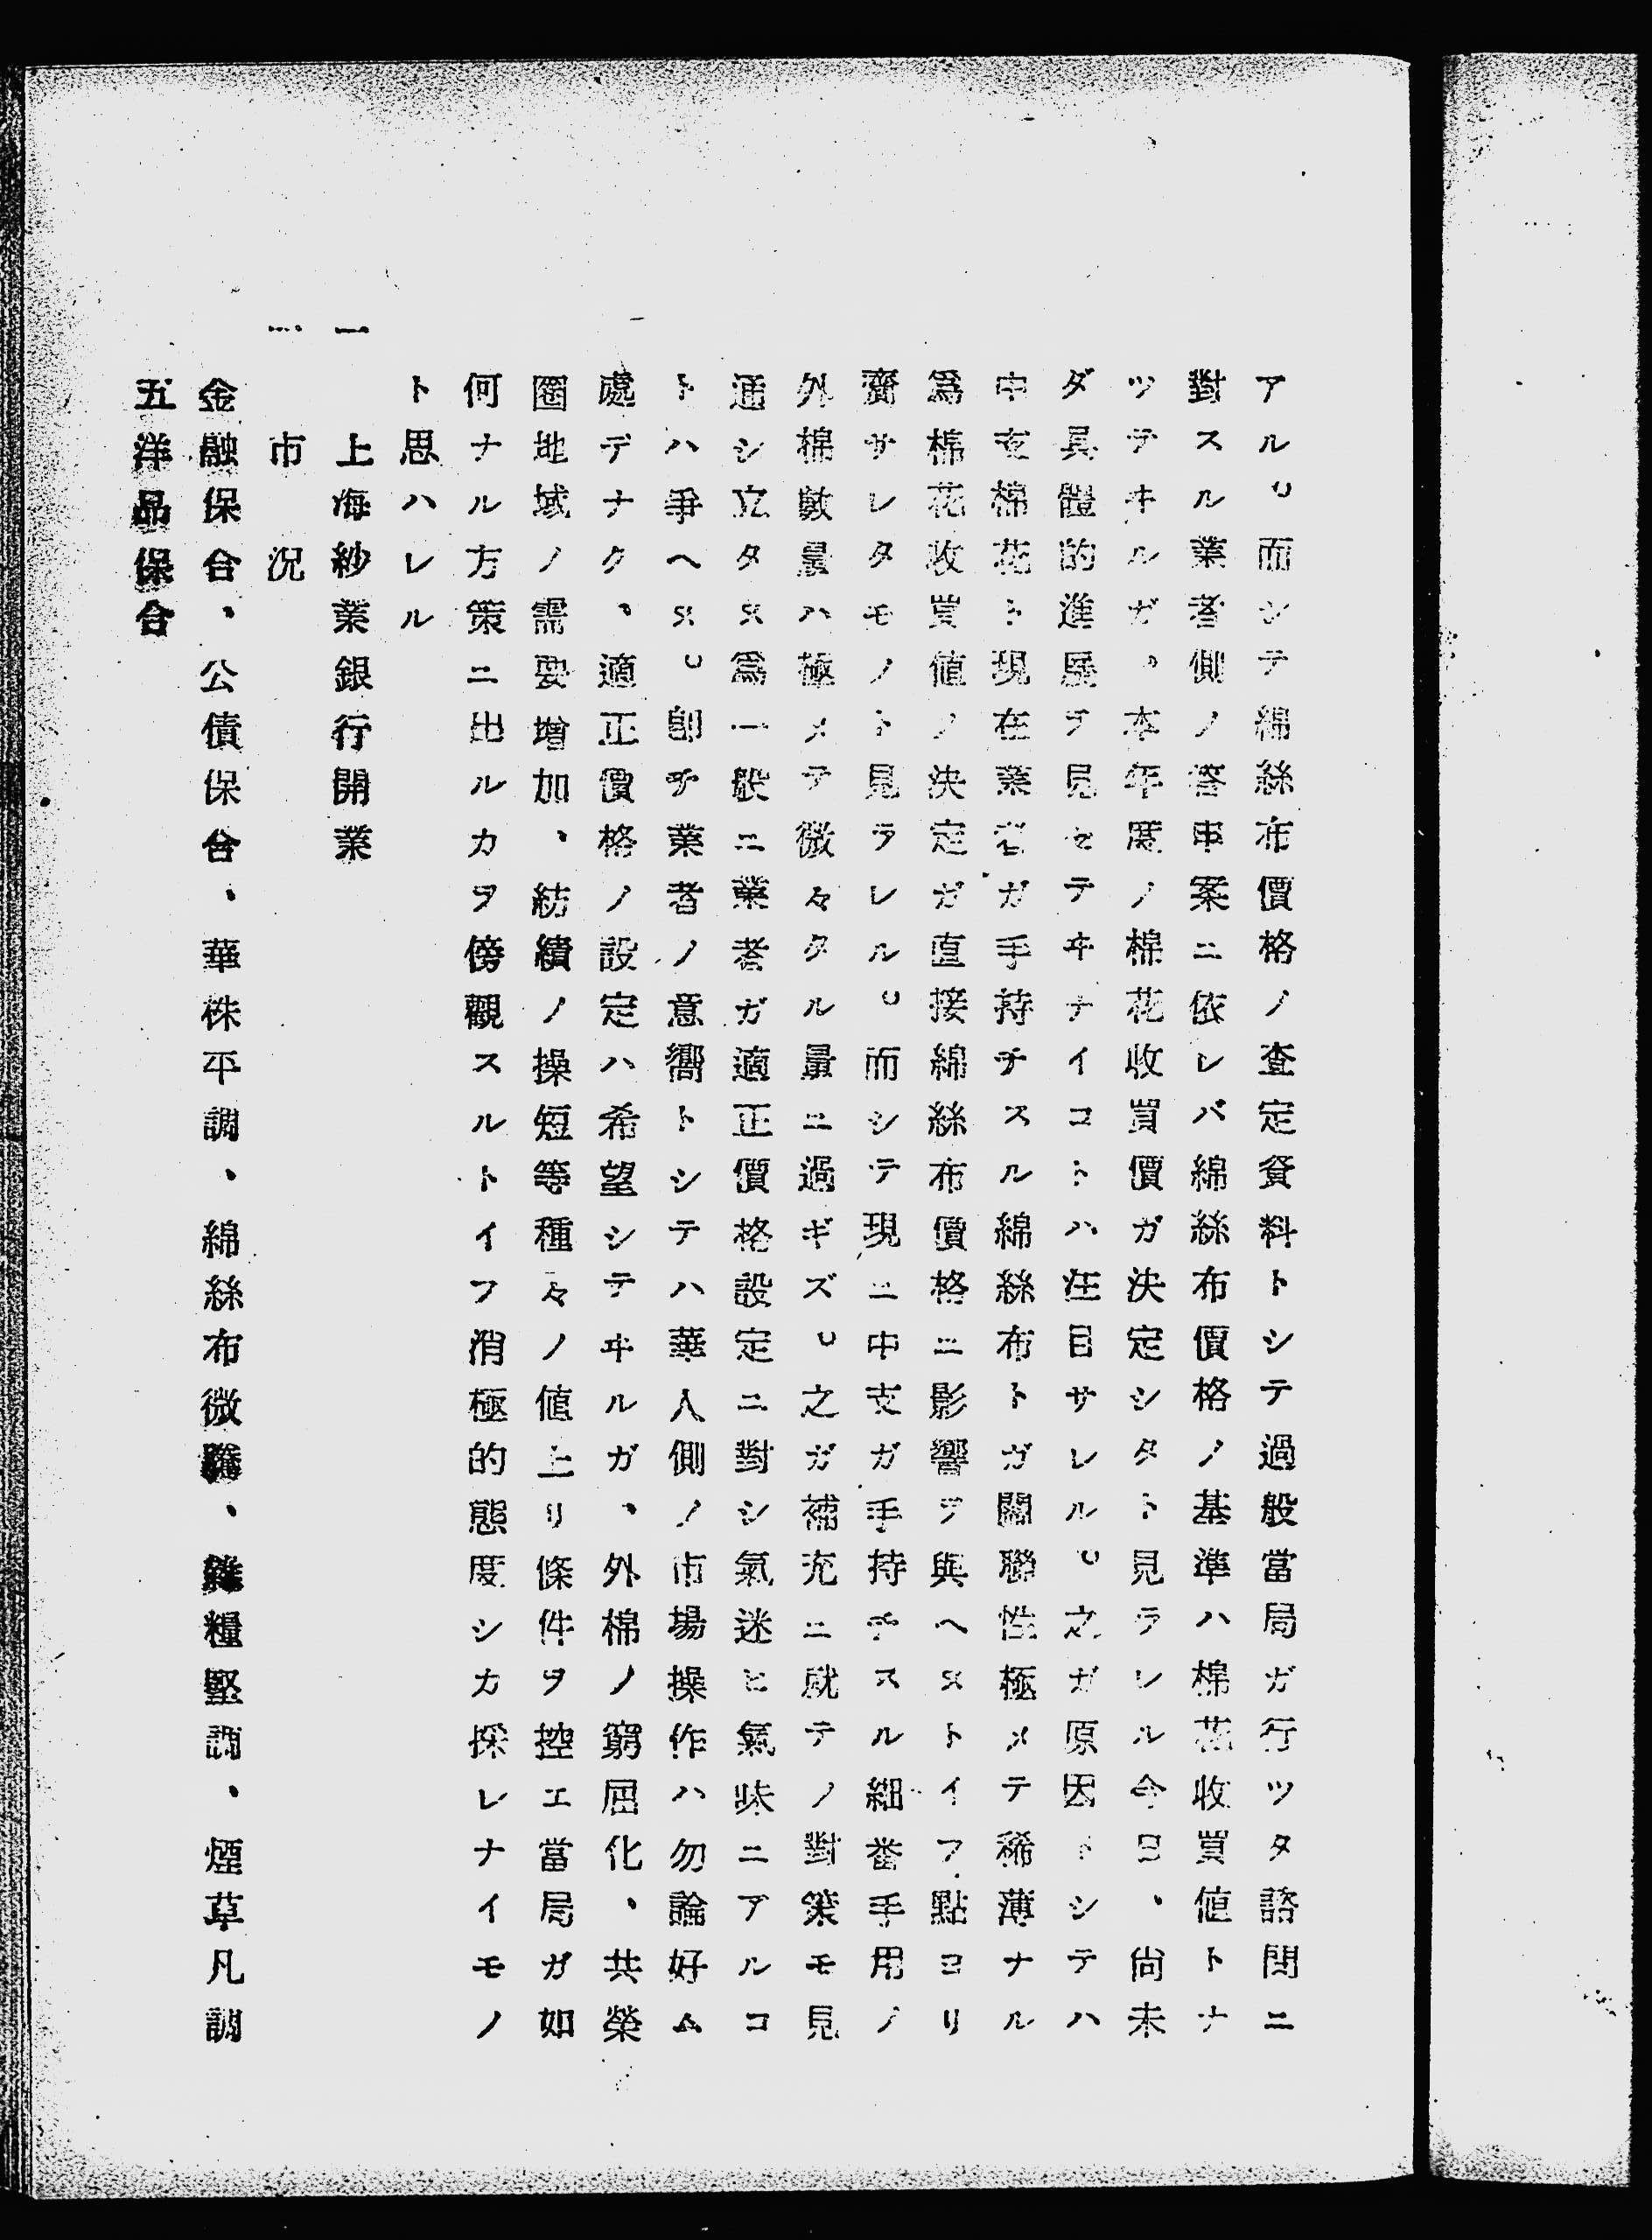 アル。而シテ綿絲布價格ノ査定資料トシテ過般當局ガ行ツタ諮問ニ
對スル業者側ノ答申案ニ依レバ綿絲布價格ノ基準ハ棉花收買値トナ
ツテヰルガ。本年度ノ棉花收買價ガ決定シタト見ラレル今日、尙未
ダ具體的進展ヲ見セテヰナイコトハ注目サレル。之ガ原因トシテハ
中支棉花ト現在業者ガ手持チスル綿絲布トガ關聯性極メテ稀薄ナル
爲棉花收買値ノ決定ガ直接綿絲布價格ニ影響ヲ與ヘヌトイフ點ヨリ
齎サレタモノト見ラレル。而シテ現ニ中支ガ手持チスル細番手用ノ
外棉數量ハ極メテ微々タル量ニ過ギズ。之ガ補充ニ就テノ對策モ見
通シ立タヌ爲一般ニ業者ガ適正價格設定ニ對シ氣迷ヒ氣味ニアルコ
トハ爭ヘヌ。卽チ業者ノ意嚮トシテハ華人側ノ市場操作ハ勿論好ム
處デナク、適正價格ノ設定ハ希望シテヰルガ、外棉ノ窮屈化、共榮
圈地域ノ需要增加、紡績ノ操短等種々ノ値上リ條件ヲ控エ當局ガ如
何ナル方策ニ出ルカヲ傍觀スルトイフ消極的態度シカ採レナイモノ
ト思ハレル
一 上海紗業銀行開業
一、市況
金融保合、公債保合、華株平調、綿絲布微騰、雜糧堅調、煙草凡調
五洋品保合